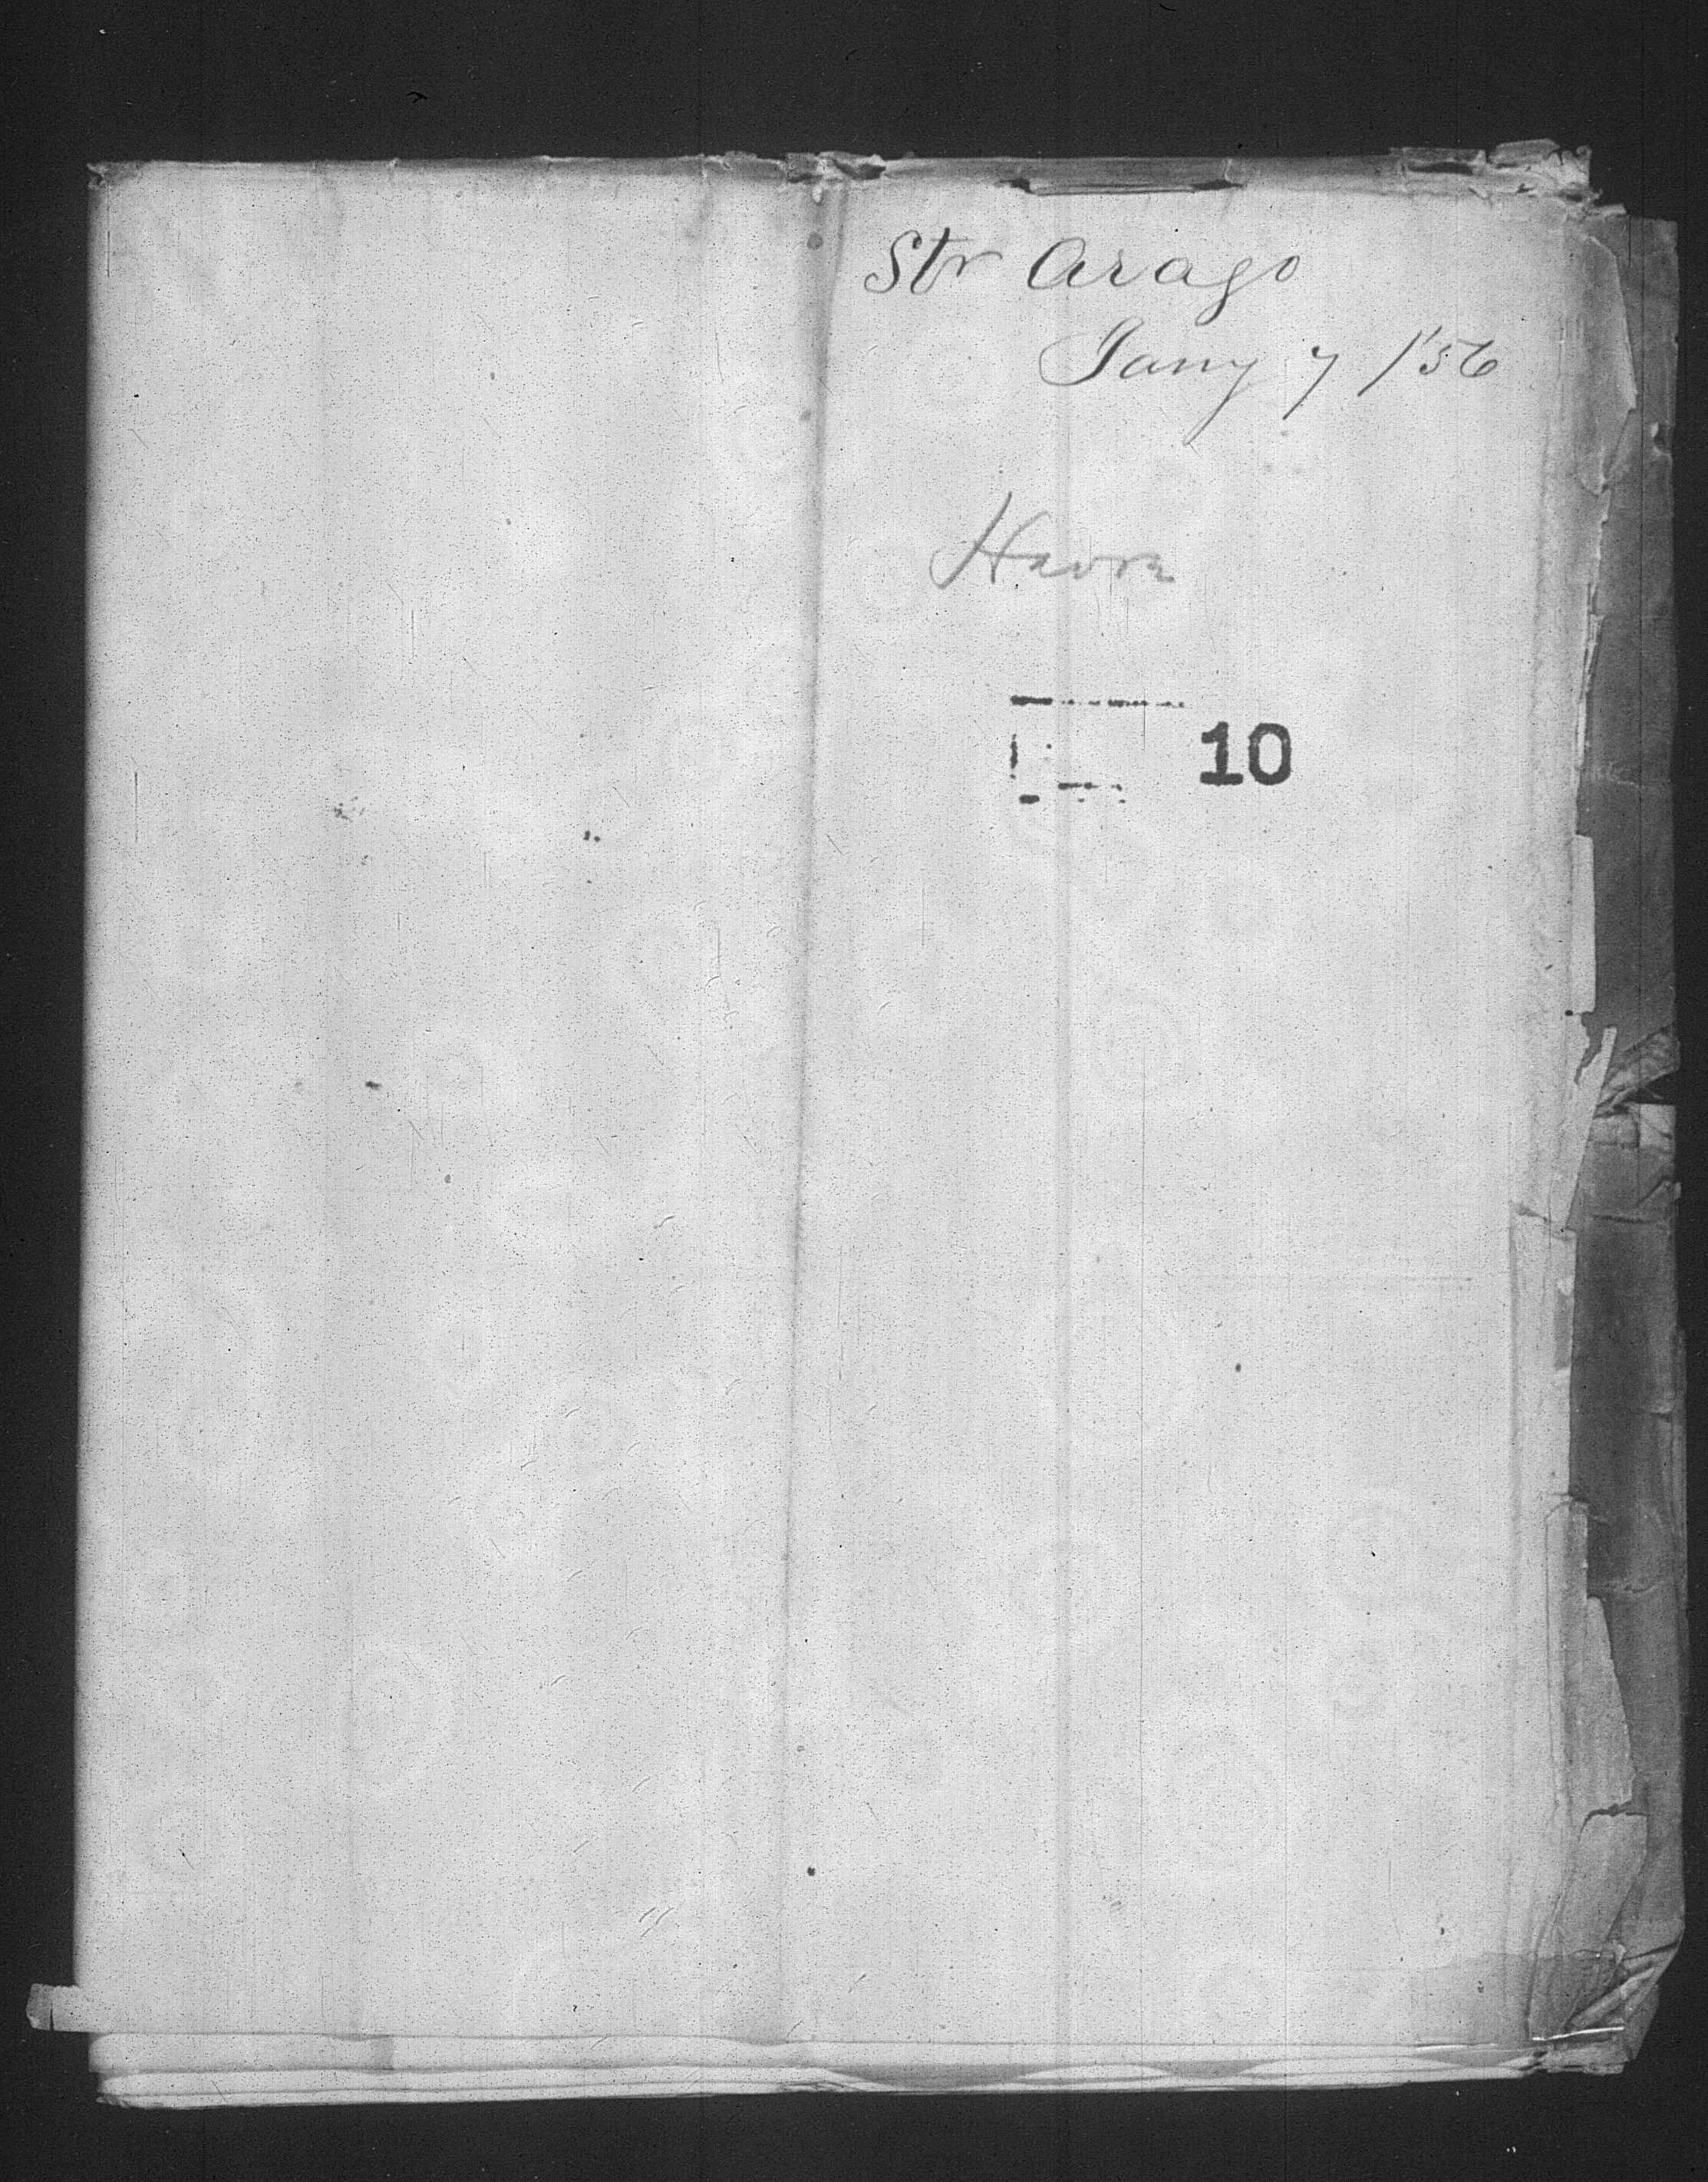 Str Arago
Jany 7 /56
Havre
10